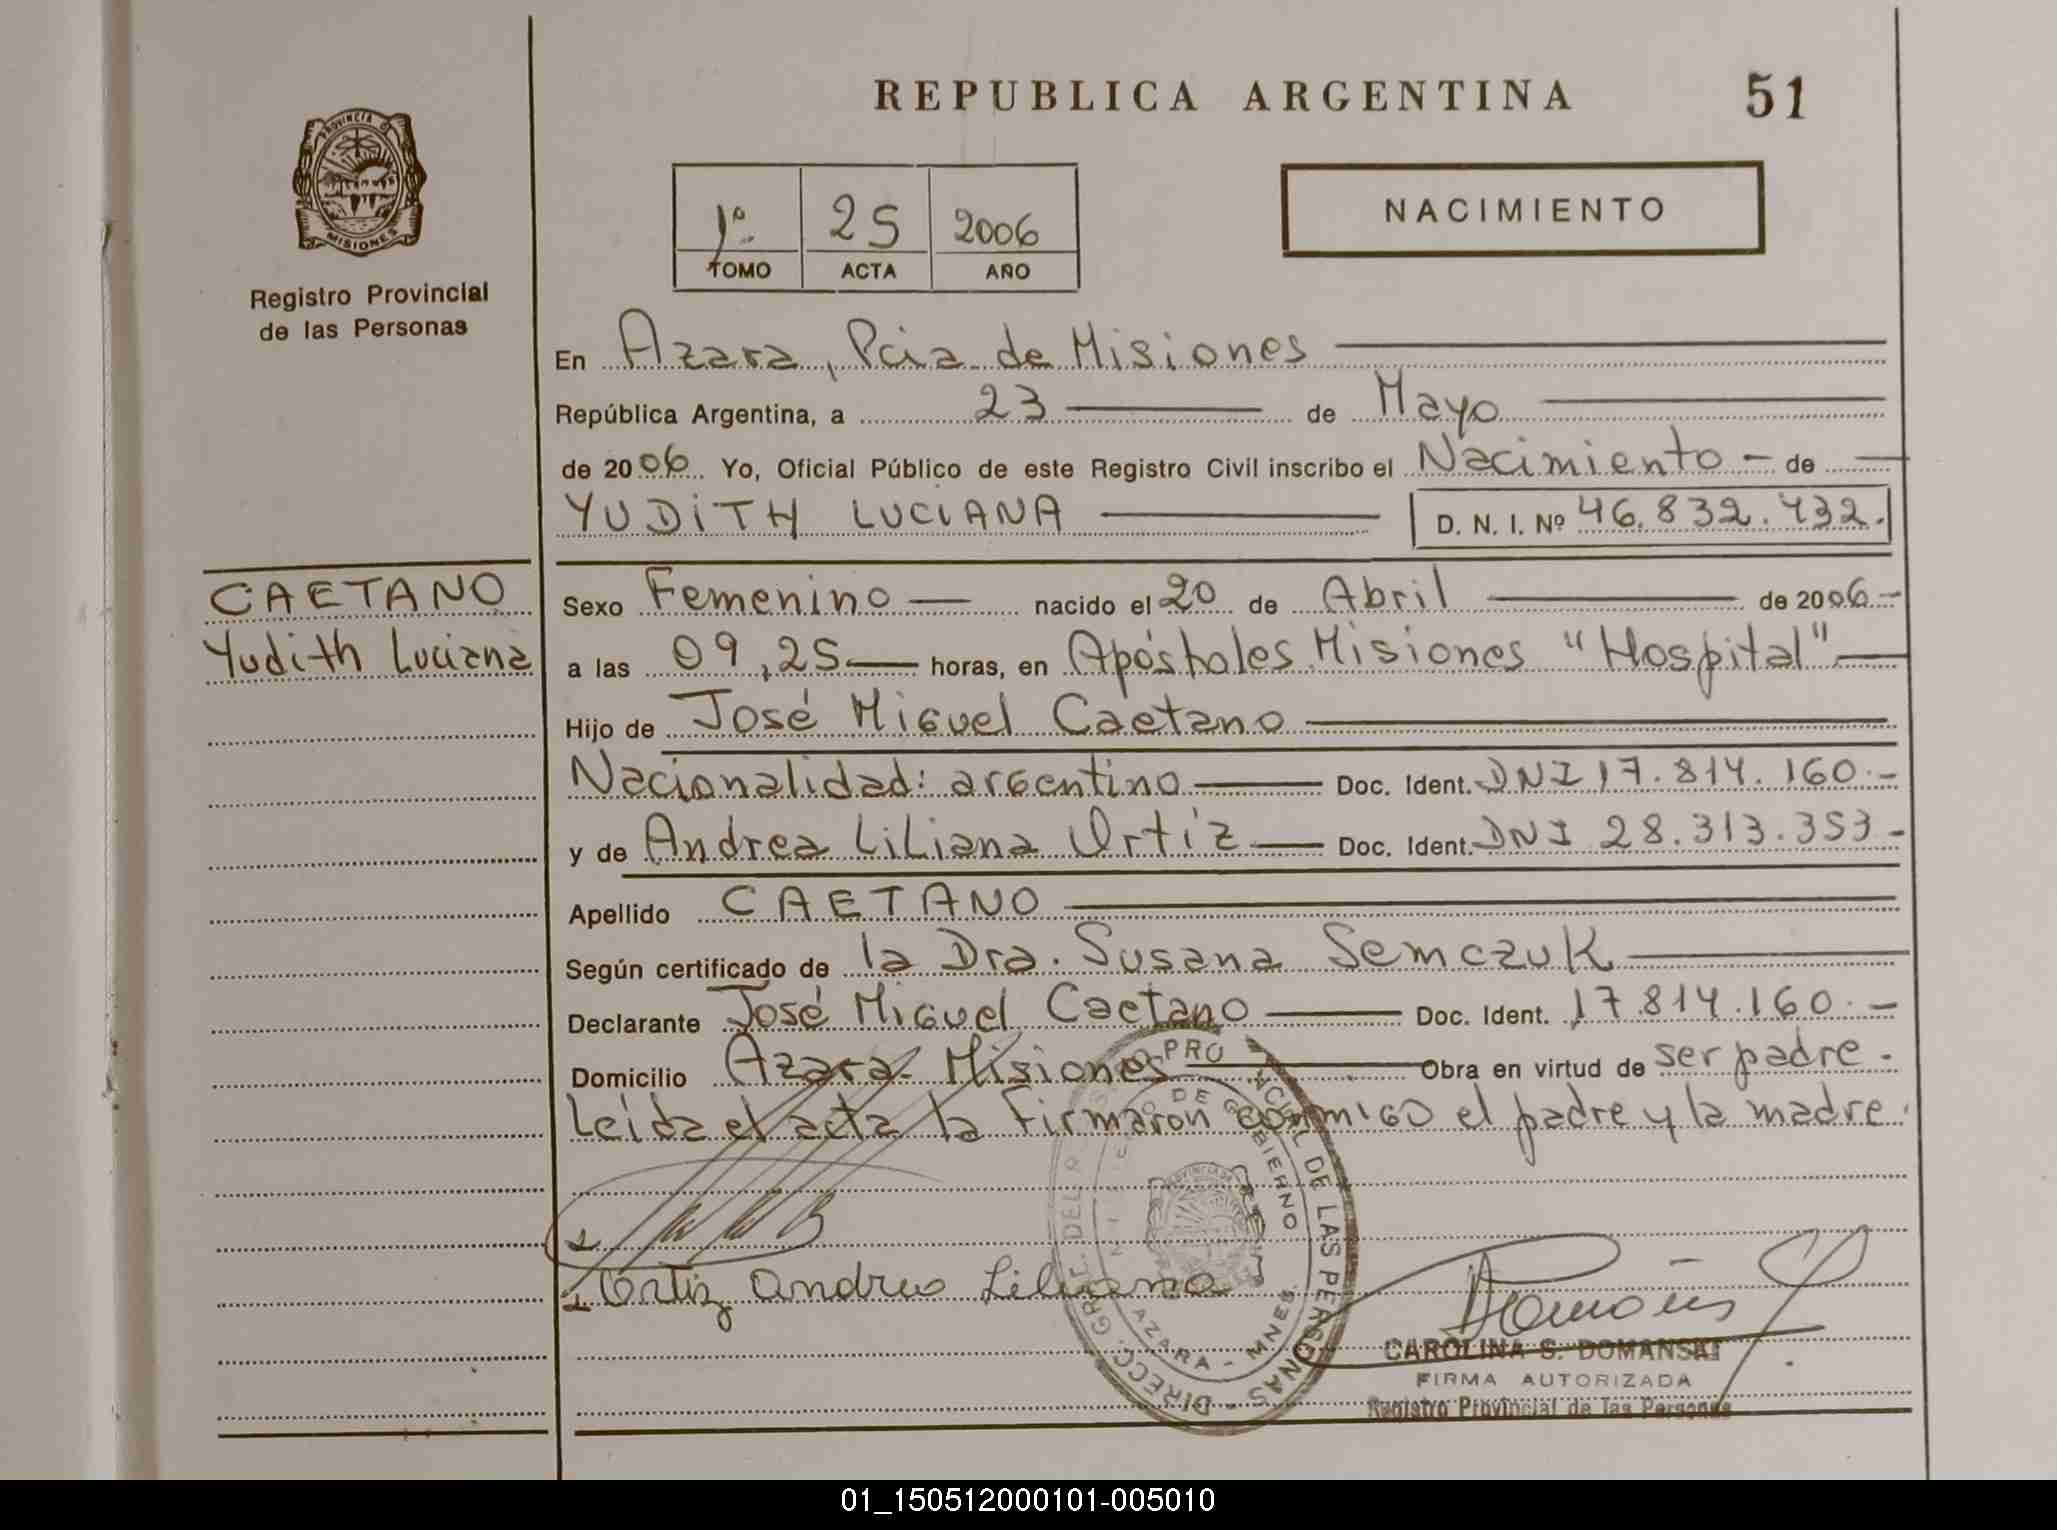 REPUBLICA ARGENTINA 51
PROVINCIA D
MISIONES
Registro Provincial
de las Personas
1º 25 2006
TOMO ACTA AÑO
NACIMIENTO
En Azara, Pcia de Misiones
República Argentina, a 23 de Mayo
de 2006 Yo, Oficial Público de este Registro Civil inscribo el Nacimiento - de
YUDITH LUCIANA D. N. I. Nº 46.832.432.
CAETANO
Yudith Luciana
Sexo Femenino nacido el 20 de Abril de 2006 -
a las 09,25 horas, en Apóstoles Misiones "Hospital"
Hijo de José Miguel Caetano
Nacionalidad: argentino Doc. Ident. DNI 17.814.160.-
y de Andrea Liliana Ortiz Doc. Ident. DNI 28.313.353 -
Apellido CAETANO
Según certificado de la Dra. Susana Semczuk
Declarante José Miguel Caetano Doc. Ident. 17.814.160.-
Domicilio Azara Misiones Obra en virtud de ser padre.
Leída el acta la firmaron conmigo el padre y la madre.
Ortiz Andrea Liliana
DIRECC. GRAL. DEL DE LAS PERSONAS
DE GOBIERNO
AZARA - MNES
CAROLINA S. DOMANSKI
FIRMA AUTORIZADA
Registro Provincial de las Personas
01_150512000101-005010